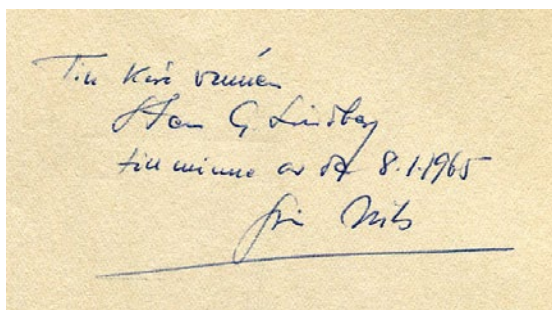 Till Käre vännen
Sten G. Lindberg
till minne av d. 8.1.1965
från Nils